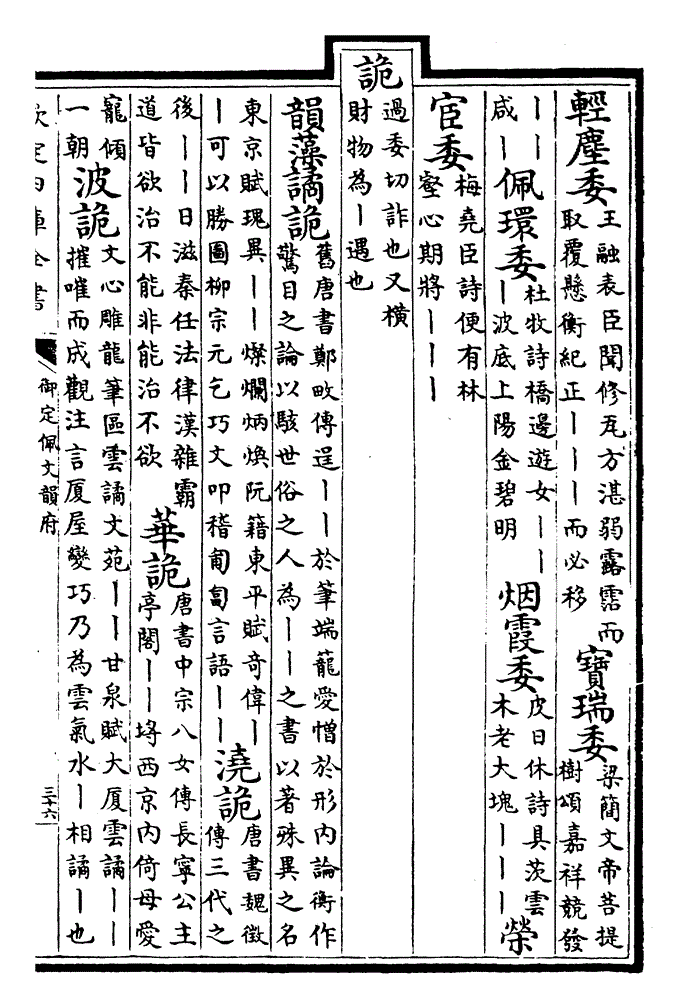 輕塵委王融表臣聞修瓦方湛弱露霑而取覆懸衡紀正丨丨丨而必移寶瑞委梁簡文帝菩提樹頌嘉祥競發
丨丨咸丨佩環委杜牧詩橋邊遊女丨丨丨波底上陽金碧明烟霞委皮日休詩具茨雲木老大塊丨丨丨榮
宦委梅堯臣詩便有林壑心期將丨丨丨
詭過委切詐也又橫財物為丨遇也
韻藻譎詭舊唐書鄭畋傳逞丨丨於筆端籠愛憎於形內論衡作驚目之論以駭世俗之人為丨丨之書以著殊異之名
東京賦瑰異丨丨燦爛炳煥阮籍東平賦奇偉丨丨可以勝圖柳宗元乞巧文叩稽匍匐言語丨丨澆詭唐書魏徵傳三代之
後丨丨日滋秦任法律漢雜霸道皆欲治不能非能治不欲華詭唐書中宗八女傳長寧公主亭閣丨丨埒西京內倚母愛
寵傾一朝波詭文心雕龍筆區雲譎文苑丨丨甘泉賦大厦雲譎丨丨摧嗺而成觀注言厦屋變巧乃為雲氣水丨相譎丨也
欽定四庫全書
御定佩文韻府
三十六